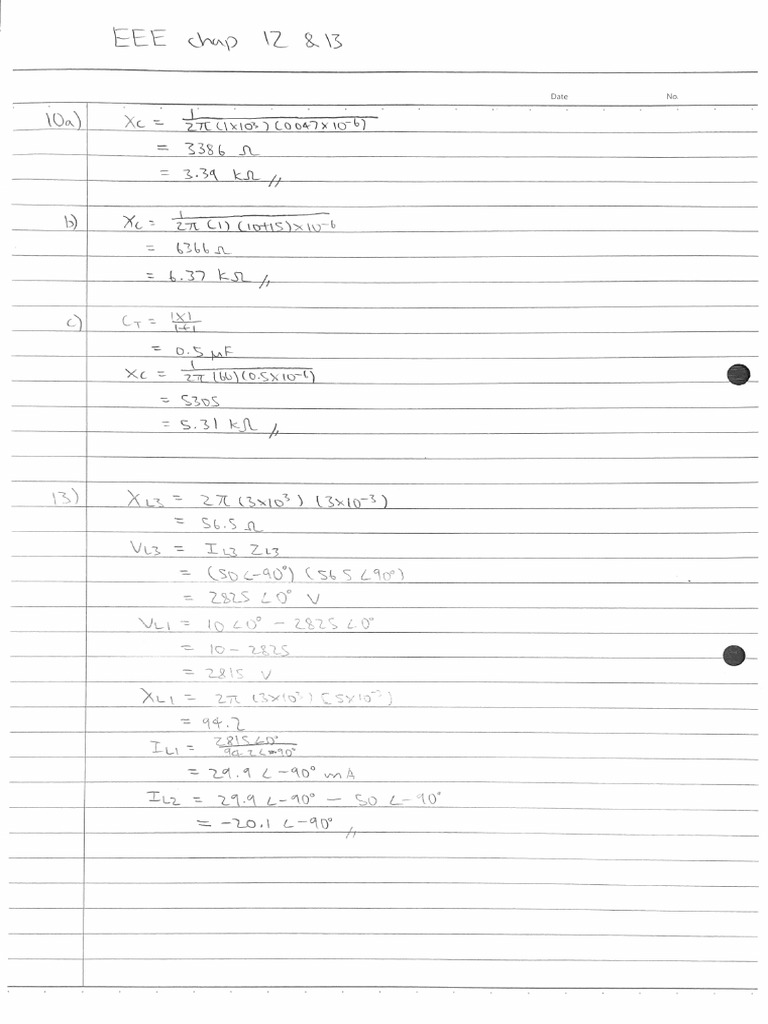 EEE chap 12 & 13
Date No.
10a) Xc = 1 / 2π (1×10³) (0.047×10⁻⁶)
= 3386 Ω
= 3.39 kΩ //
b) Xc = 1 / 2π (1) (10+15)×10⁻⁶
= 6366 Ω
= 6.37 kΩ //
c) CT = 1×1 / 1+1
= 0.5 μF
Xc = 1 / 2π (60) (0.5×10⁻⁶)
= 5305
= 5.31 kΩ //
13) XL3 = 2π (3×10³) (3×10⁻³)
= 56.5 Ω
VL3 = IL3 ZL3
= (50 ∠-90°) (56.5 ∠90°)
= 2825 ∠0° V
VL1 = 10 ∠0° - 2825 ∠0°
= 10 - 2825
= 2815 V
XL1 = 2π (3×10³) (5×10⁻³)
= 94.2
IL1 = 2815 ∠0° / 94.2 ∠-90°
= 29.9 ∠-90° mA
IL2 = 29.9 ∠-90° - 50 ∠-90°
= -20.1 ∠-90° //